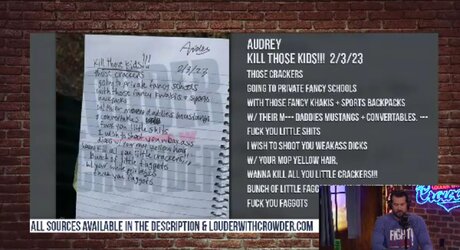 Audrey
Kill those kids!!!
2/3/23
those crackers
going to private fancy schools
with those fancy khakis + sports
backpacks
w/ their daddies mustangs
+ convertables
fuck you little shits
I wish to shoot you weakass
dicks w/ your mop yellow hair
bunch of little
CROWDER
AUDREY
KILL THOSE KIDS!!! 2/3/23
THOSE CRACKERS
GOING TO PRIVATE FANCY SCHOOLS
WITH THOSE FANCY KHAKIS + SPORTS BACKPACKS
W/ THEIR M--- DADDIES MUSTANGS + CONVERTABLES. ---
FUCK YOU LITTLE SHITS
I WISH TO SHOOT YOU WEAKASS DICKS
W/ YOUR MOP YELLOW HAIR,
WANNA KILL ALL YOU LITTLE CRACKERS!!!
BUNCH OF LITTLE FAGG
FUCK YOU FAGGOTS
ALL SOURCES AVAILABLE IN THE DESCRIPTION & LOUDERWITHCROWDER.COM
LOUDER WITH
FIGHT